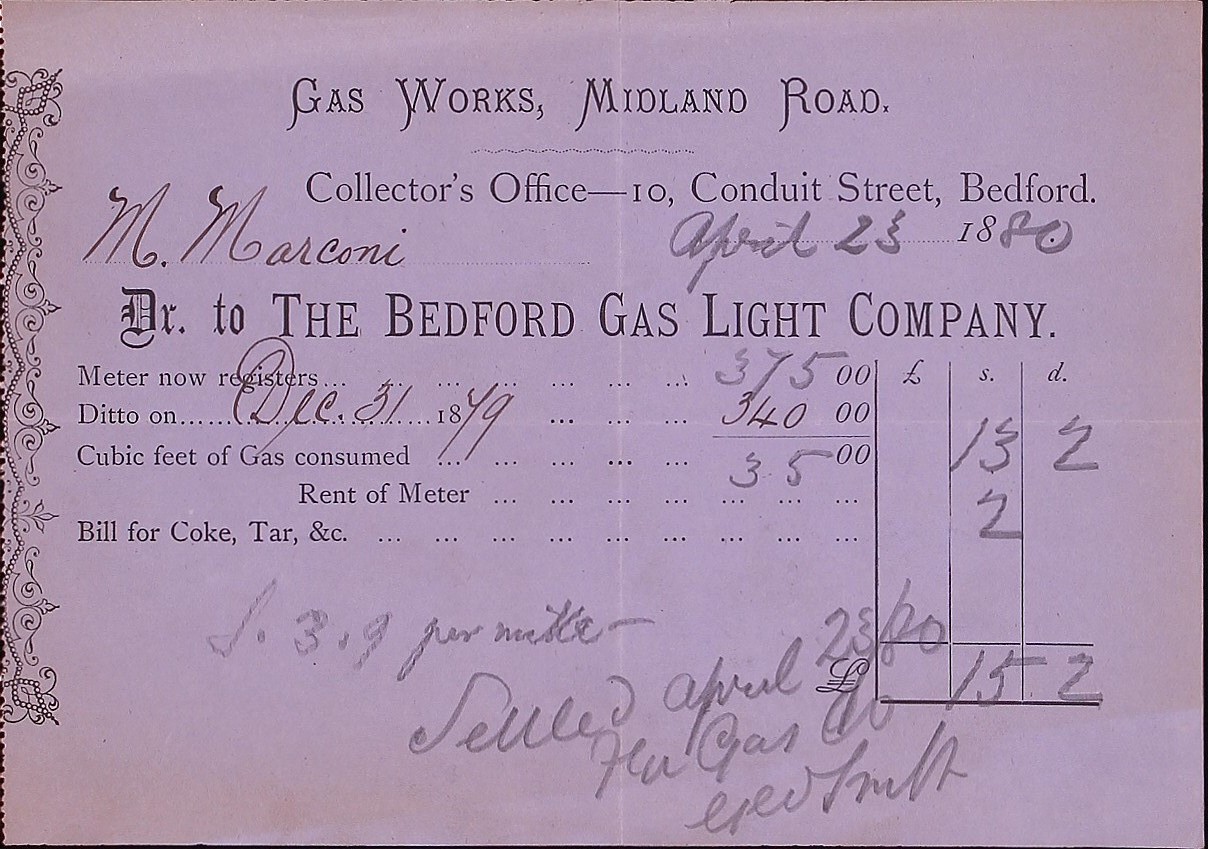 GAS WORKS, MIDLAND ROAD.
Collector's Office—10, Conduit Street, Bedford.
M. Marconi April 23 1880
Dr. to THE BEDFORD GAS LIGHT COMPANY.
Meter now registers... ... ... ... ... ... ... 375 00 £ s. d.
Ditto on Dec. 31 1879 ... ... ... 340 00
Cubic feet of Gas consumed ... ... ... ... ... 35 00 13 2
Rent of Meter ... ... ... ... ... ... ... 2
Bill for Coke, Tar, &c. ... ... ... ... ... ... ... ... ...
3.9 per
£ 15 2
Settled April 23/80
For Gas Co
Geo Smith